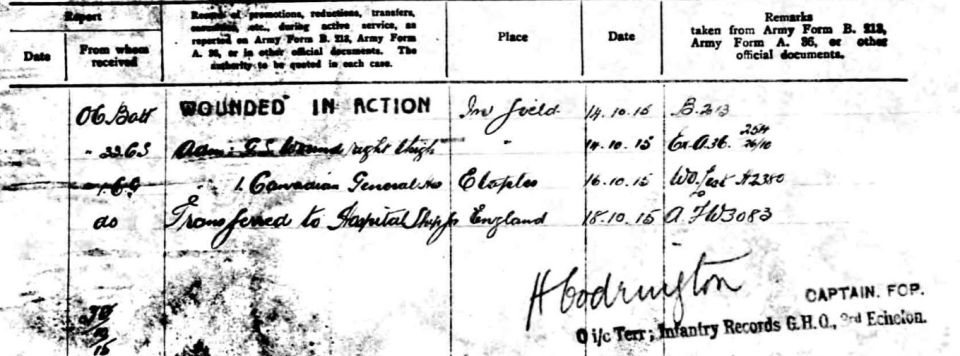 Report
Record of promotions, reductions, transfers,
casualties, etc., during active service, as
reported on Army Form B. 213, Army Form
A. 36, or in other official documents. The
authority to be quoted in each case.
Place
Date
Remarks
taken from Army Form B. 213,
Army Form A. 36, or other
official documents.
Date
From whom
received
OC Batt WOUNDED IN ACTION In field 14.10.15 B.213
" 23 CS Adm: G.S. Wound right thigh " 14.10.15 A.36.
1. Canadian General Etaples 16.10.15 WO List
do Transferred to Hospital Ship for England 18.10.15 A.F.W3083
H Codrington
CAPTAIN. FOR.
O i/c Terr; Infantry Records G.H.Q., 3rd Echelon.